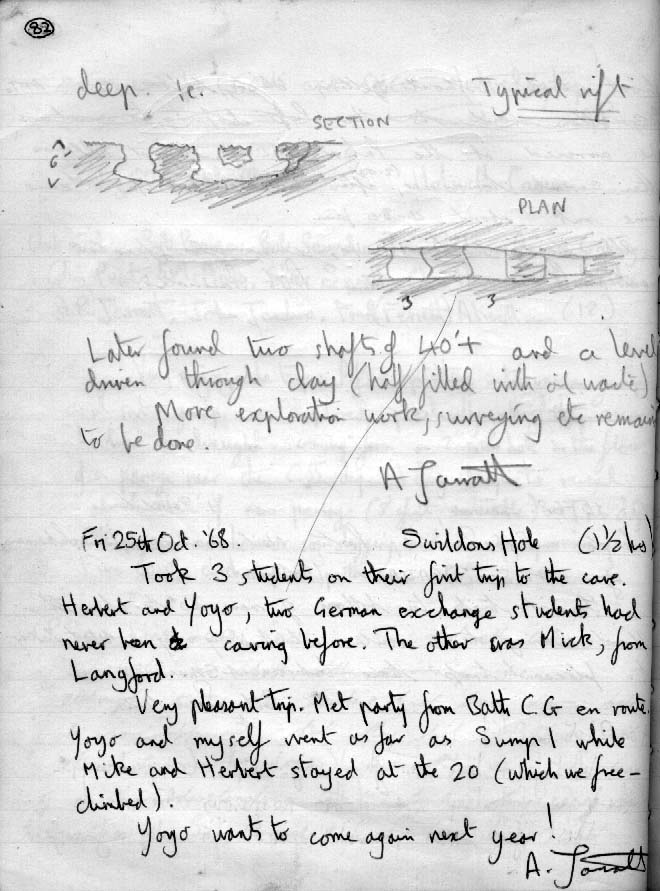 82
deep. ie. Typical rift
SECTION
^
6'
v
PLAN
3 3
Later found two shafts of 40'+ and a level
driven through clay (half filled with oil waste)
More exploration work, surveying etc remain
to be done.
A Jarratt
Fri 25th Oct. '68. Swildons Hole (1 1/2 hrs)
Took 3 students on their first trip to the cave.
Herbert and Yogo, two German exchange students had
never been caving before. The other was Mick, from
Langford.
Very pleasant trip. Met party from Bath C.G en route.
Yogo and myself went as far as Sump 1 while
Mike and Herbert stayed at the 20 (which we free-
climbed).
Yogo wants to come again next year!
A. Jarratt